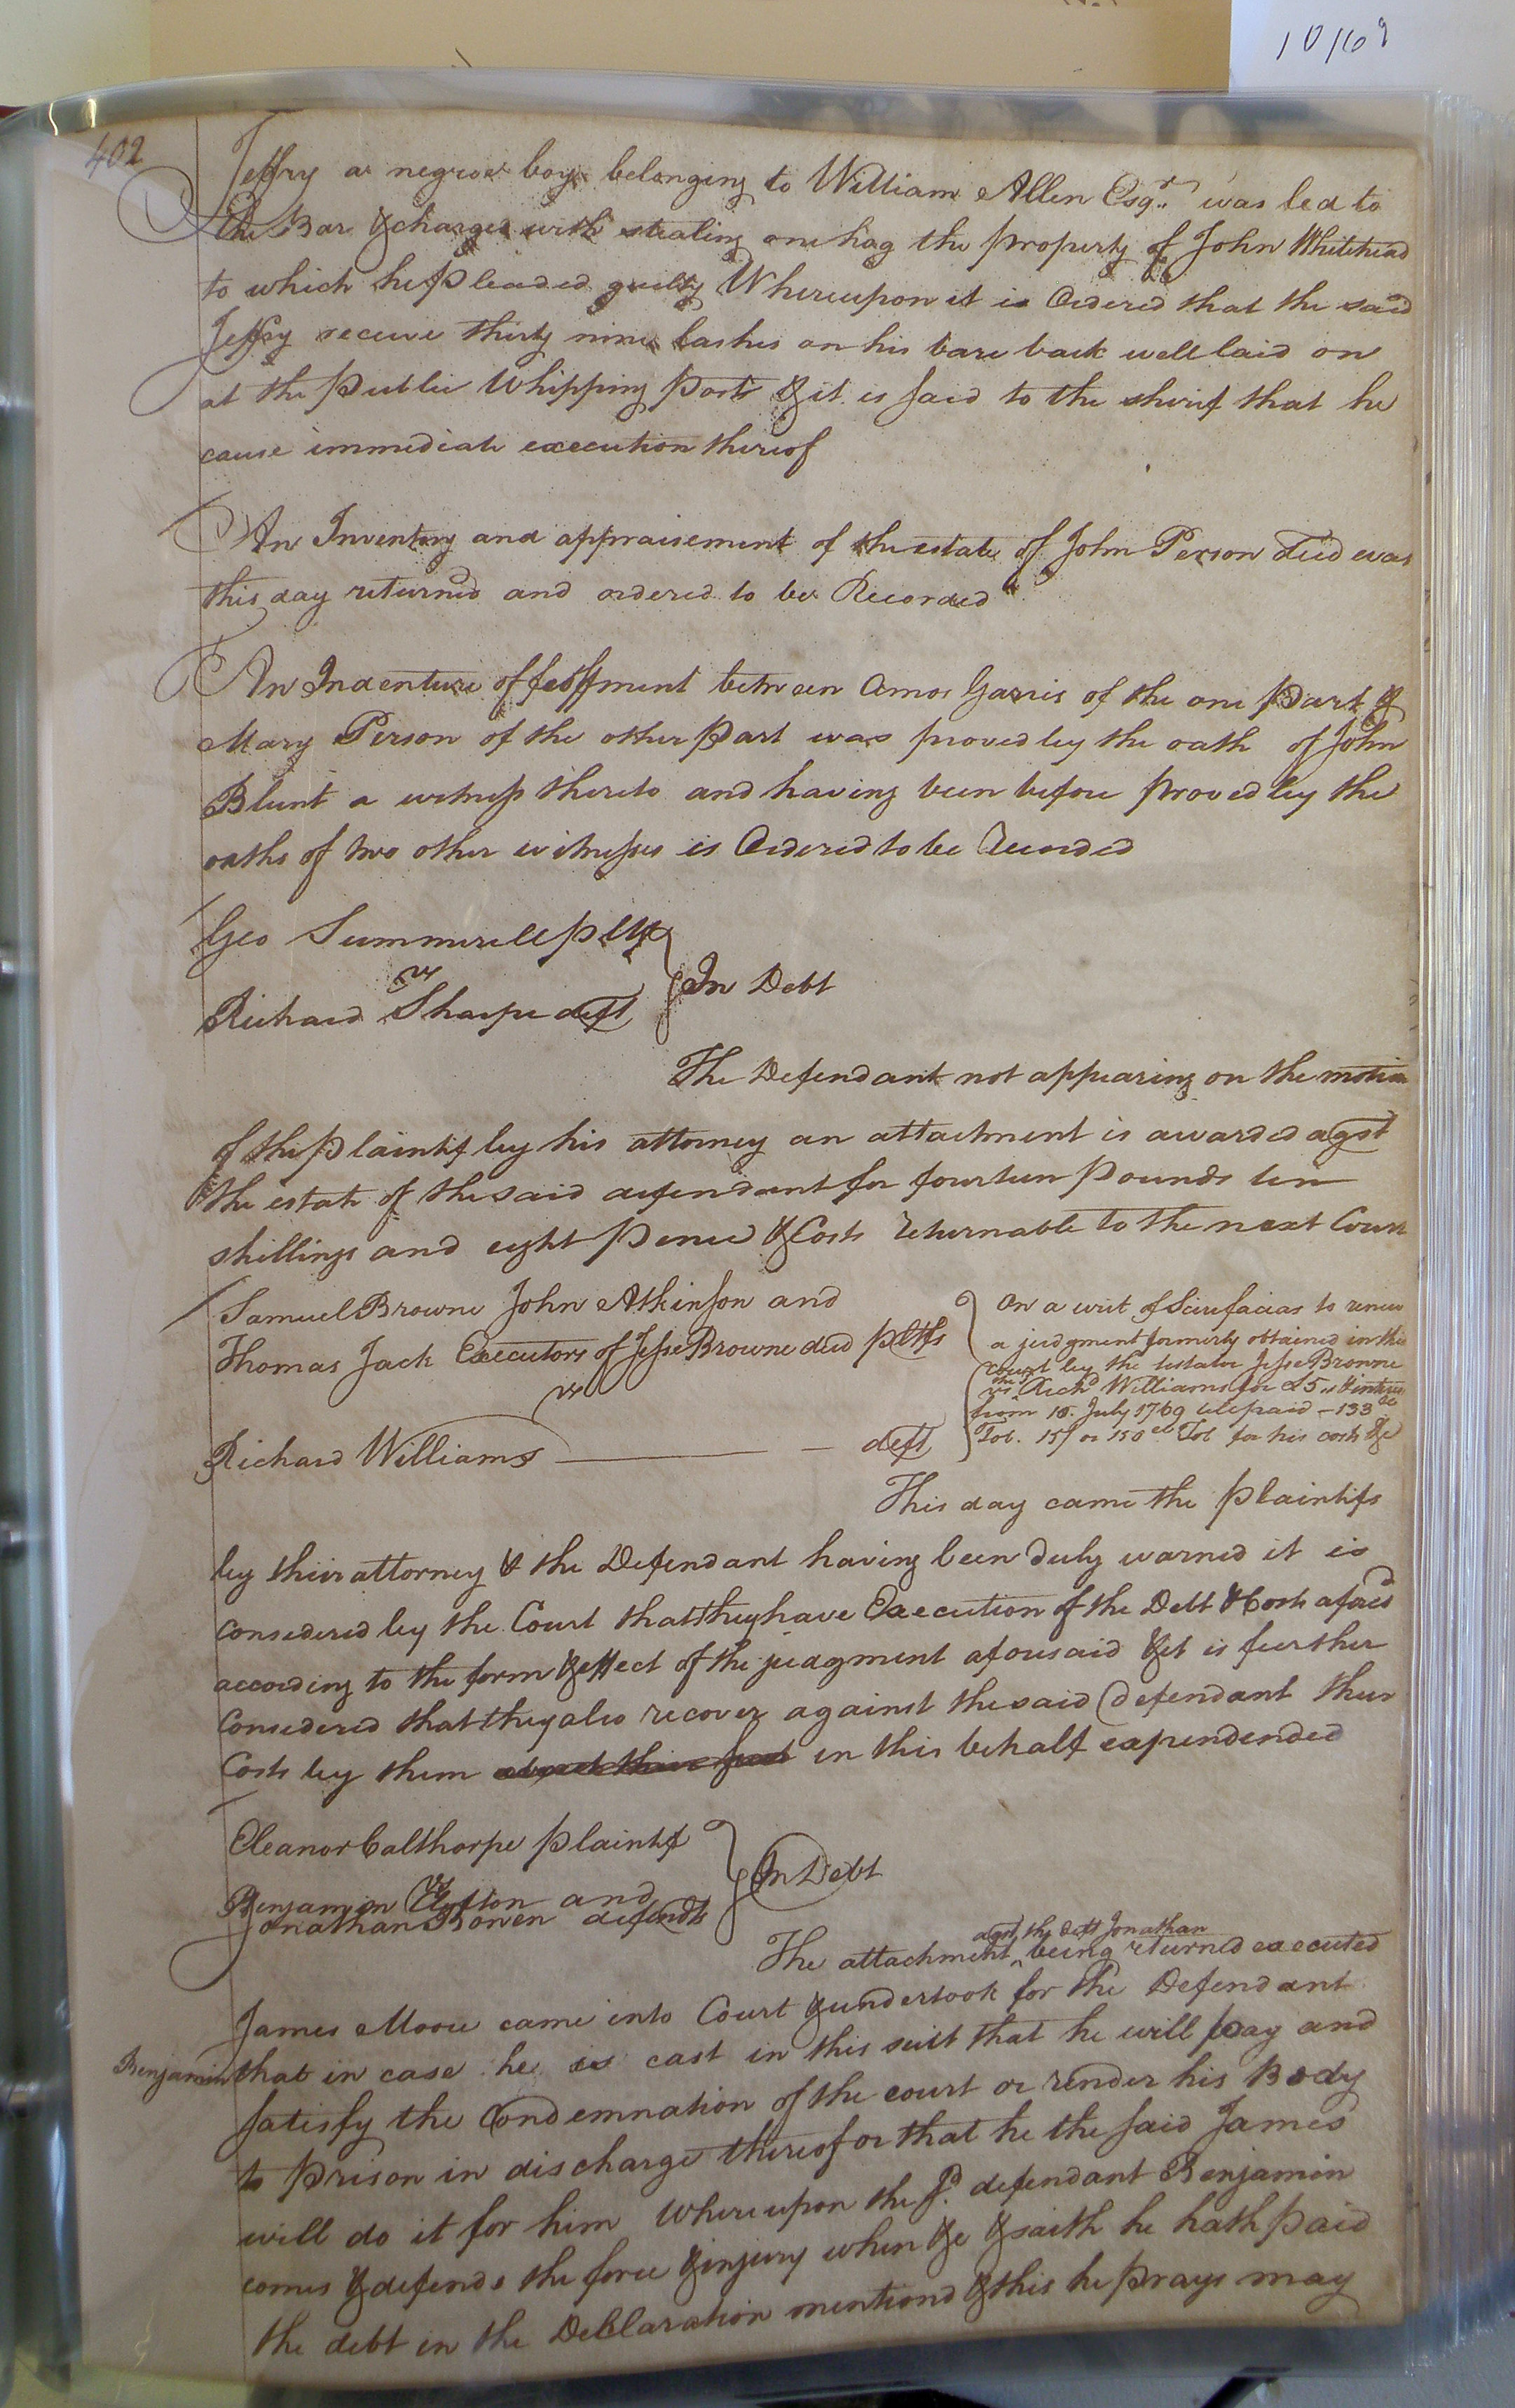 10/69
402
Jeffry a negroe boy belonging to William Allen Esqr. was led to
the Bar & charged with stealing one hog the property of John Whitehead
to which he pleaded guilty Whereupon it is Ordered that the said
Jeffry receive thirty nine lashes on his bare back well laid on
at the Public Whipping Post & it is said to the sherif that he
cause immediate execution thereof
An Inventory and appraisement of the estate of John Person decd was
this day returned and ordered to be Recorded
An Indenture of feoffment between Amos Garris of the one part &
Mary Person of the other Part was proved by the oath of John
Blunt a witness thereto and having been before proved by the
oaths of two other witnesses is Ordered to be Recorded
Geo Summerell pltf
vs
In Debt
Richard Sharpe deft
The Defendant not appearing on the motion
of the Plaintif by his attorney an attachment is awarded agst
the estate of the said defendant for fourteen Pounds ten
shillings and eight Pence & Costs returnable to the next Court
Samuel Browne John Atkinson and
Thomas Jack Executors of Jesse Browne decd pltfs
vs
Richard Williams deft
On a writ of Scirefacias to renew
a judgment formerly obtained in this
Court by the testator Jesse Browne
vs the sd Richd Williams for £5 & interest
from 10. July 1769 till paid - 133 lb
Tob. 15/ or 150 lb Tob for his costs &c
This day came the Plaintifs
by their attorney & the Defendant having been duly warned it is
considered by the Court that they have Execution of the Debt & Costs aforesd
according to the form & effect of the judgment aforesaid & it is further
Considered that they also recover against the said defendant their
Costs by them in this behalf expendended
Eleanor Calthorpe plaintif
vs
In Debt
Benjamin Clifton and
Jonathan Bowen defendts
agst the deft Jonathan
The attachment ^ being returned executed
James Moore came into Court & undertook for the Defendant
Benjamin that in case he is cast in this suit that he will pay and
satisfy the Condemnation of the court or render his Body
to prison in discharge thereof or that he the said James
will do it for him Whereupon the sd. defendant Benjamin
comes & defends the force & injury when &c & saith he hath paid
the debt in the Declaration mentiond & this he prays may